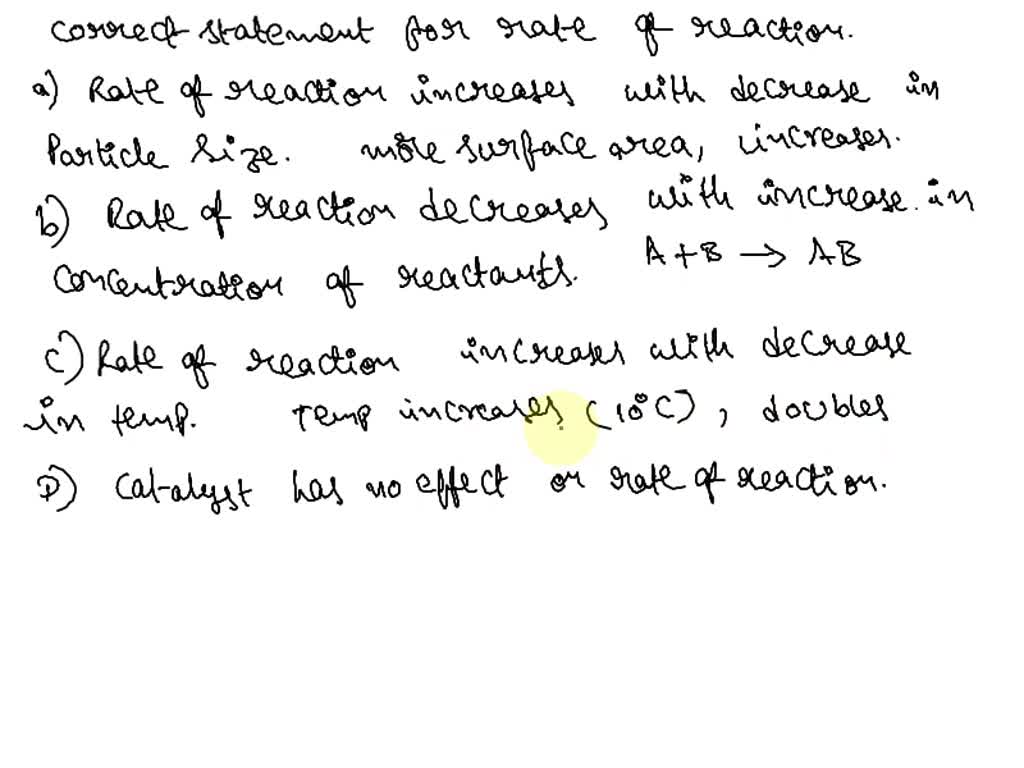 correct statement for rate of reaction.
a) Rate of reaction increases with decrease in
Particle Size. more surface area, increases.
b) Rate of reaction decreases with increase in
concentration of reactants. A + B → AB
c) Rate of reaction increases with decrease
in temp. Temp increases (10°C), doubles
D) Catalyst has no effect on rate of reaction.